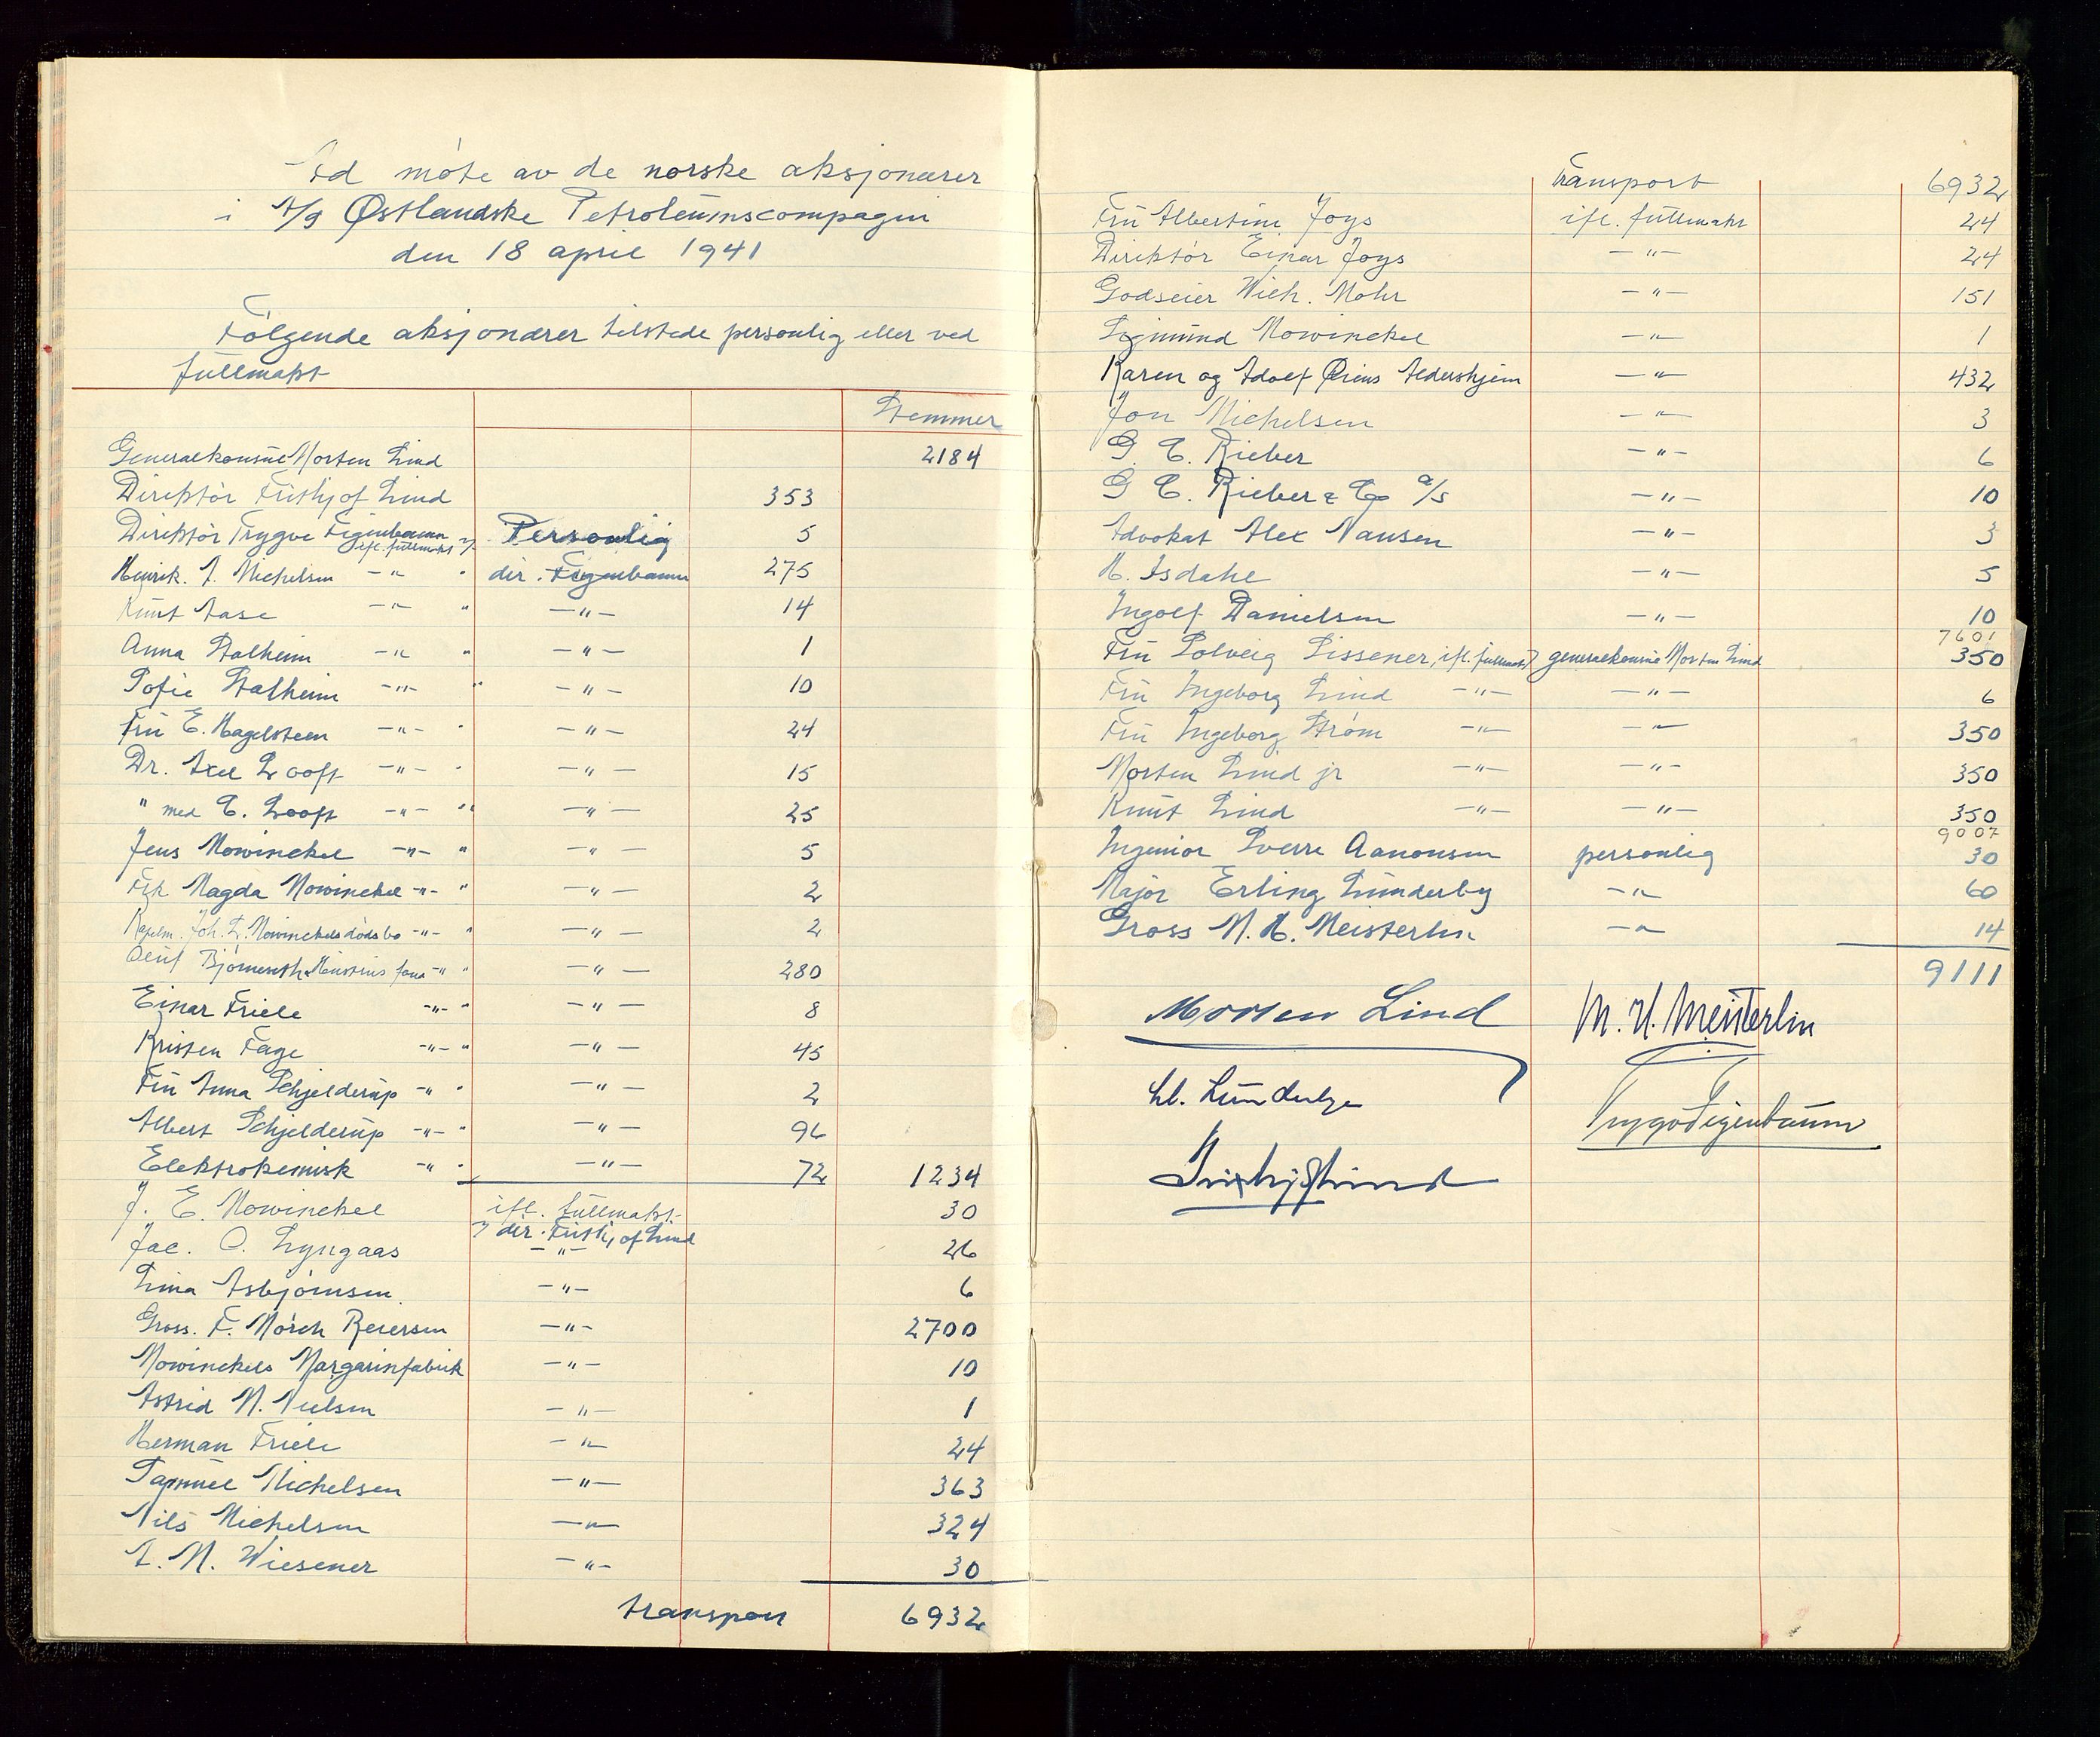 Ved møte av de norske aksjonærer
i A/S Østlandske Petroleumscompagni
den 18 april 1941
Følgende aksjonærer tilstede personlig eller ved
fullmakt
Stemmer
Generalkonsul Morten Lind 2184
Direktør Fritjhof Lind 353
Direktør Trygve Figenbaum Personlig 5
ifl. fullmakt t/
Henrik. J. Michelsen -"- " dir. Figenbaum 275
Knut Aase -"- " -"- 14
Anna Stalheim -"- " -"- 1
Sofie Stalheim -"- " -"- 10
Fru E. Magelsteen -"- " -"- 24
Dr. Axel Looft -"- " -"- 15
" med C. Looft -"- " -"- 25
Jens Mowinckel -"- " -"- 5
Frk Magda Mowinckel -"- " -"- 2
Joh. L. Mowinckels dødsbo -"- " -"- 2
Bjørnseth -"- " -"- 280
Einar Friele -"- " -"- 8
Kristen Fage -"- " -"- 45
Fru Anna Schjelderup -"- " -"- 2
Albert Schjelderup -"- " -"- 96
Elektrokemisk -"- " -"- 72 1234
J. E. Mowinckel ifl. fullmakt 30
t/ dir. Fritjhof Lind
Jac. O. Lyngaas -"- 26
Lina Asbjørnsen -"- 6
Gross. F. Mørch Reiersen -"- 2700
Mowinckels Margarinfabrik -"- 10
Astrid M. Nielsen -"- 1
Herman Friele -"- 24
Samuel Michelsen -"- 363
Nils Michelsen -"- 324
A. M. Wiesener -"- 30
transport 6932
Transport 6932
Fru Albertine Joys ifl. fullmakt 24
Direktør Einar Joys -"- 24
Godseier Wilh. Mohr -"- 151
Sigmund Mowinckel -"- 1
Karen og Adolf Øiens Aldershjem -"- 432
Jon Michelsen -"- 3
G. C. Rieber -"- 6
G C. Rieber & Co a/s -"- 10
Advokat Alex Nansen -"- 3
H. Isdahl -"- 5
Ingolf Danielsen -"- 10
7601
Fru Solveig Lissener, ifl. fullmakt t/ generalkonsul Morten Lind 350
Fru Ingeborg Lind -"- -"- 6
Fru Ingeborg Strøm -"- -"- 350
Morten Lind jr -"- -"- 350
Knut Lind -"- -"- 350
9007
Ingeniør Sverre Aanonsen personlig 30
Major Erling Lunderby -"- 60
Gross M. H. Meisterlin -"- 14
9111
Morten Lind M. H. Meisterlin
Lunderby
Trygve Figenbaum
Fritjhof Lind